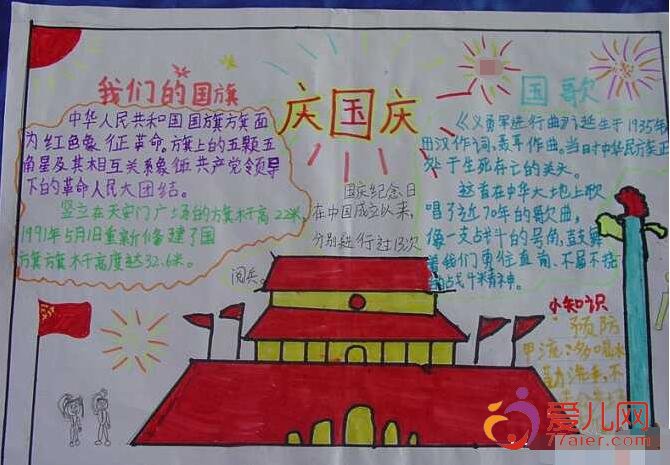 我们的国旗
中华人民共和国国旗旗面
为红色象征革命。旗上的五颗五
角星及其相互关系象征共产党领导
下的革命人民大团结。
竖立在天安门广场的旗杆高22米,
1991年5月1日重新修建了国
旗旗杆高度达32.6米。
庆国庆
国庆纪念日
在中国成立以来,
分别进行过13次
阅兵。
国歌
《义勇军进行曲》诞生于1935年
田汉作词,聂耳作曲。当时中华民族正
处于生死存亡的关头。
这首在中华大地上歌
唱了近70年的歌曲,
像一支战斗的号角,鼓舞
着我们勇往直前、不屈不挠
的战斗精神。
小知识
预防
甲流:多喝水
勤洗手,不
爱儿网
77aier.com